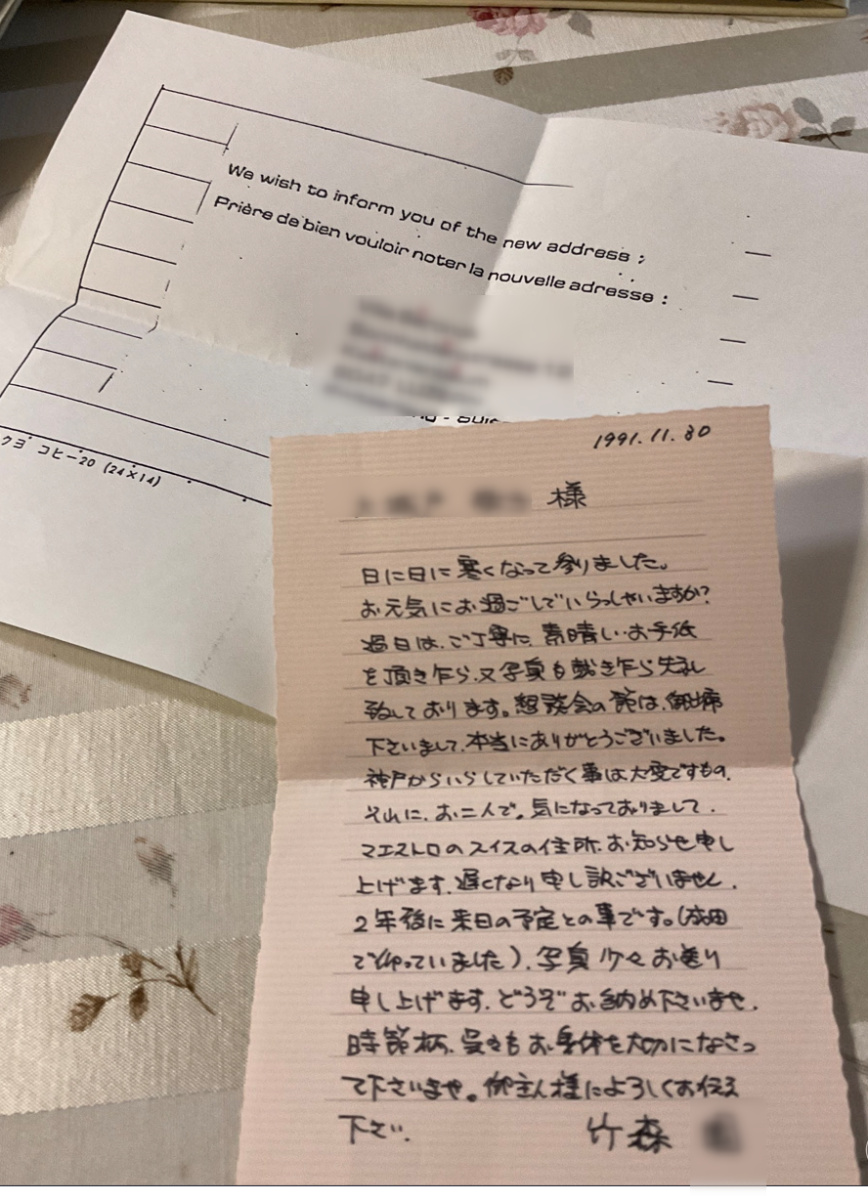 We wish to inform you of the new address :
Prière de bien vouloir noter la nouvelle adresse :
クヨ コヒー20 (24×14)
1991.11.30
様
日に日に寒くなって参りました。
お元気にお過ごしでいらっしゃいますか?
過日は、ご丁寧に、素晴しいお手紙
を頂き乍ら、又写真も戴き乍ら失礼
致しております。懇談会の節は、御出席
下さいまして、本当にありがとうございました。
神戸からいらしていただく事は大変ですもの、
それに、お二人で。気になっておりまして、
マエストロのスイスの住所、お知らせ申し
上げます。遅くなり申し訳ございません。
2年後に来日の予定との事です。(成田
で仰っていました)。写真少々お送り
申し上げます。どうぞお納め下さいませ。
時節柄、呉々もお身体を大切になさっ
て下さいませ。御主人様によろしくお伝え
下さい。
竹森